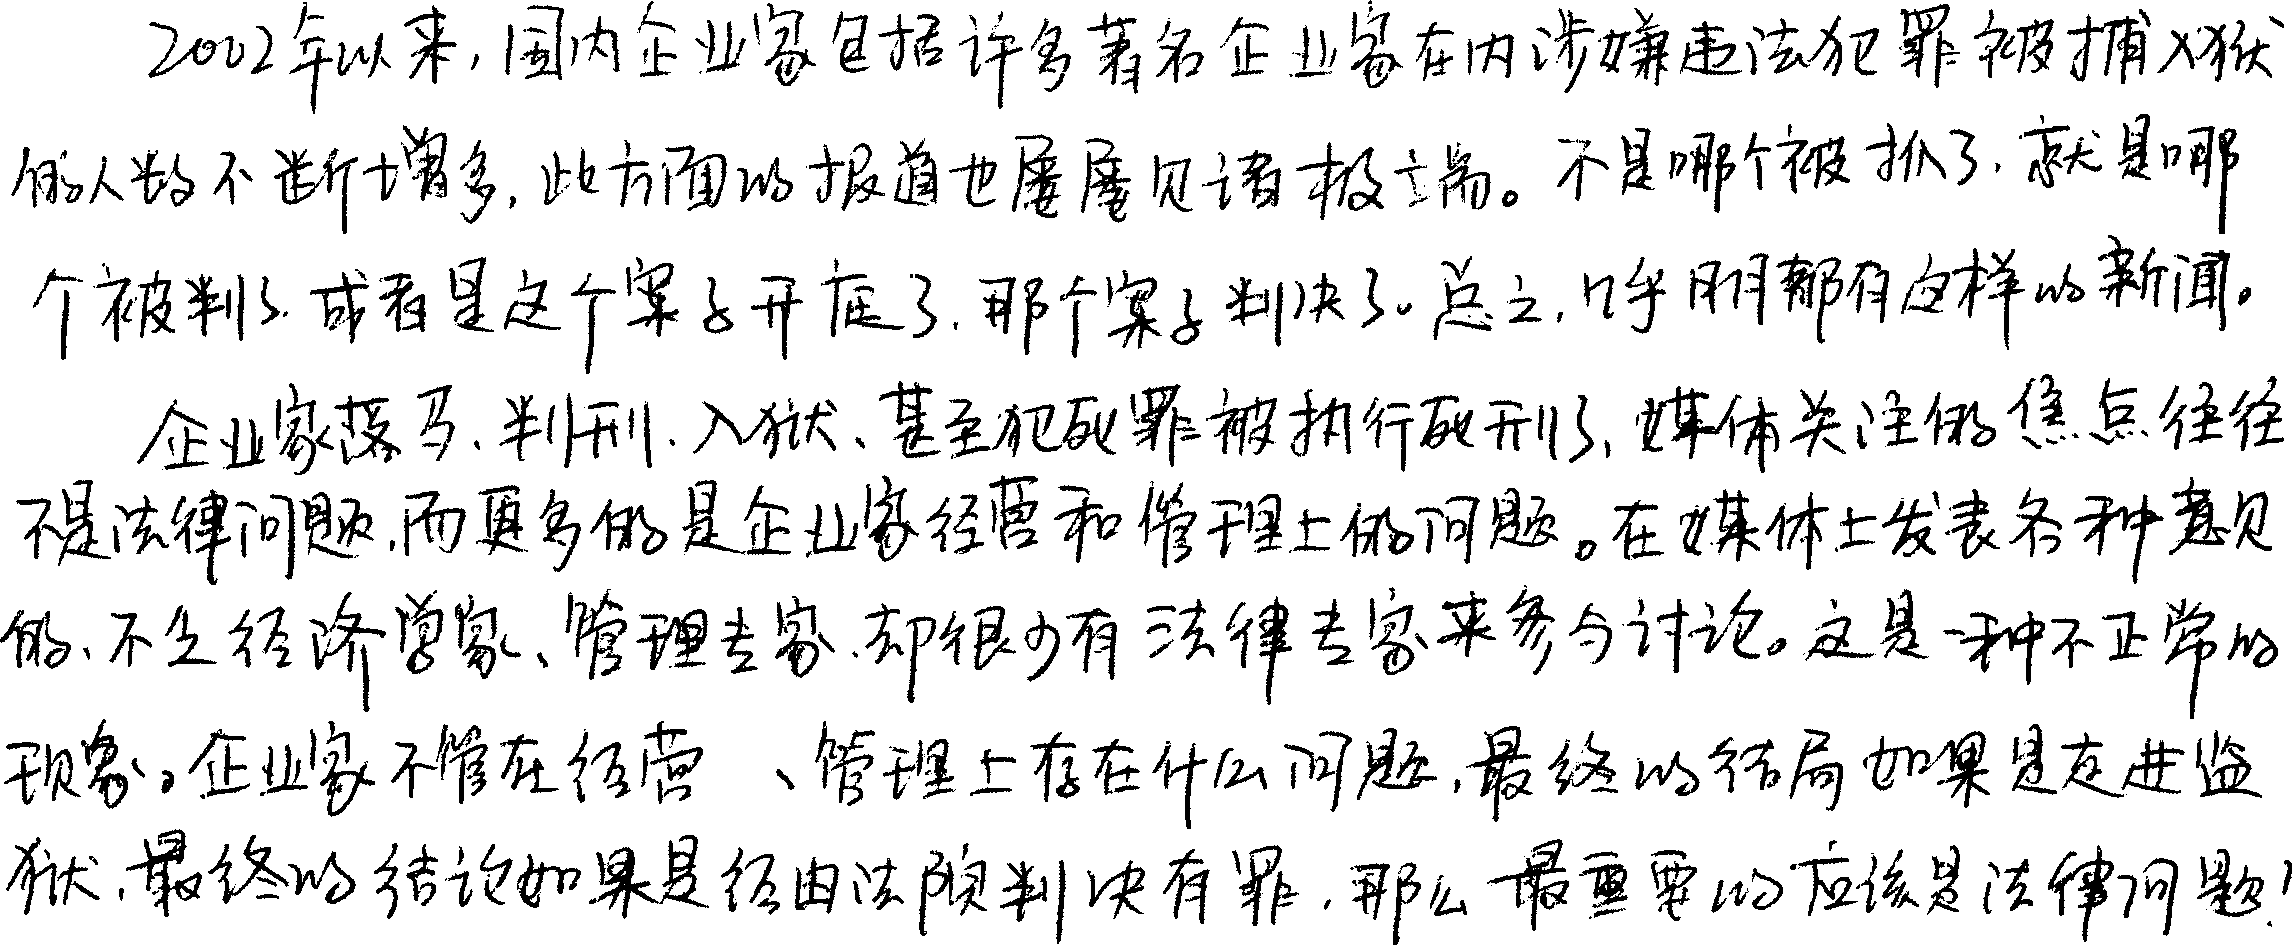 2002年以来,国内企业家包括许多著名企业家在内涉嫌违法犯罪被捕入狱
的人数不断增多,此方面的报道也屡屡见诸极端。不是哪个被抓了,就是哪
个被判了,或者是这个案子开庭了,那个案子判决了。总之,几乎月月都有这样的新闻。
企业家落马、判刑、入狱、甚至犯死罪被执行死刑了,媒体关注的焦点往往
不是法律问题,而更多的是企业家经营和管理上的问题。在媒体上发表各种意见
的,不乏经济学家、管理专家,却很少有法律专家来参与讨论。这是一种不正常的
现象。企业家不管在经营、管理上存在什么问题,最终的结局如果是走进监
狱,最终的结论如果是经由法院判决有罪,那么最重要的应该是法律问题!